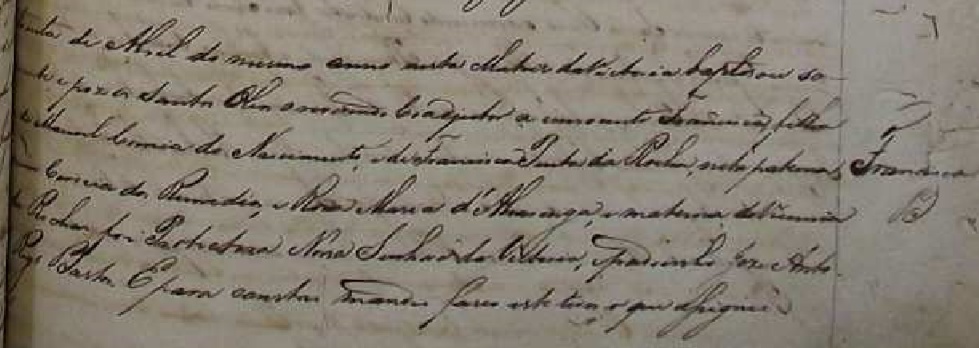 de Abril do mesmo anno nesta Matriz da Victoria baptisou so-
e poz os Santos Oleos o reverendo Coadjutor a innocente Francisca, filha
Manoel Correia do Nascimento, e de Francisca Pinta da Rocha, neta paterna
Correia dos Remedios, e Rosa Maria d'Alvarenga, e materna de
Rocha: foi Protectora Nossa Senhora da Victoria, e padrinho José Anto-
E para constar mandei fazer este termo que assignei.
Francisca
B